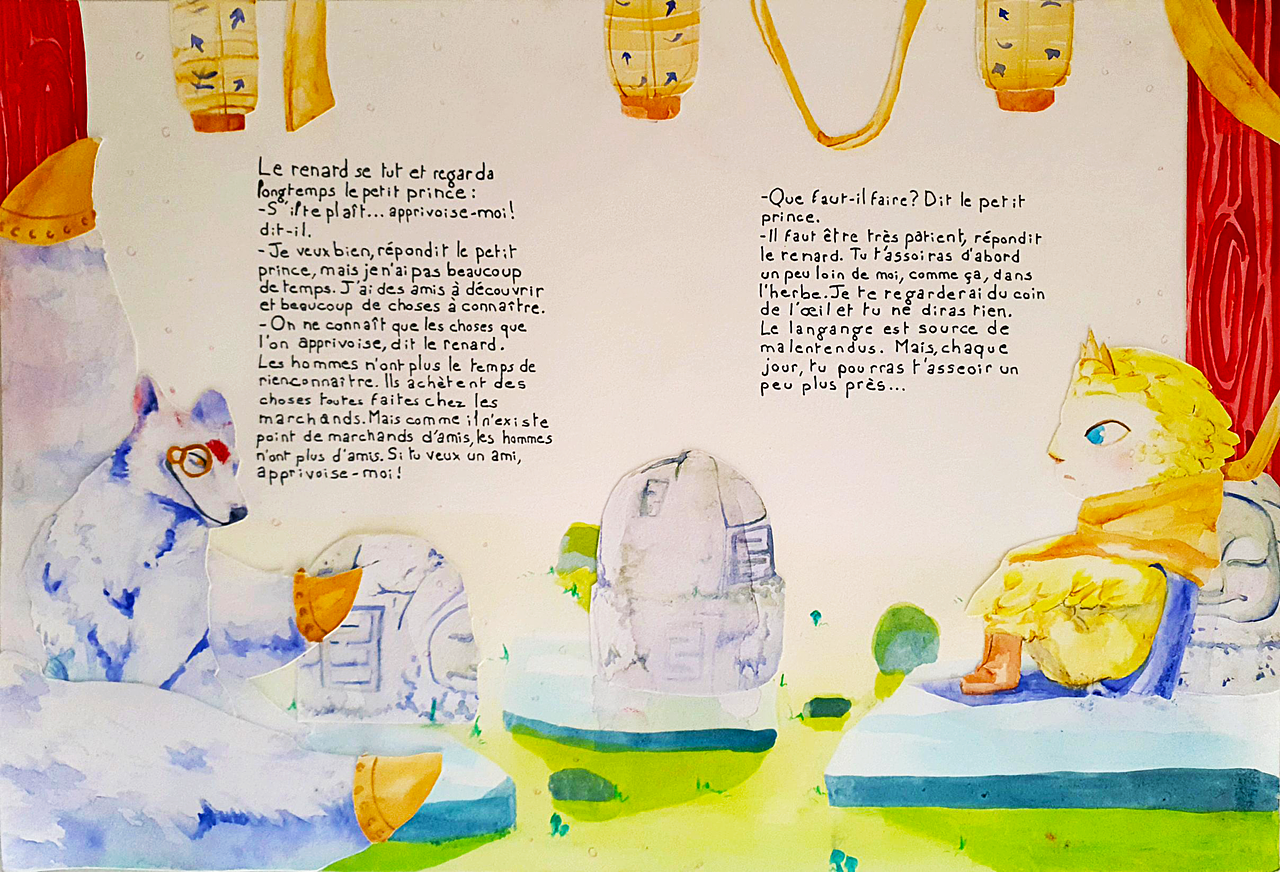 Le renard se tut et regarda
longtemps le petit prince :
-S'il te plaît... apprivoise-moi!
dit-il.
-Je veux bien, répondit le petit
prince, mais je n'ai pas beaucoup
de temps. J'ai des amis à découvrir
et beaucoup de choses à connaître.
-On ne connaît que les choses que
l'on apprivoise, dit le renard.
Les hommes n'ont plus le temps de
rien connaître. Ils achètent des
choses toutes faites chez les
marchands. Mais comme il n'existe
point de marchands d'amis, les hommes
n'ont plus d'amis. Si tu veux un ami,
apprivoise-moi!
-Que faut-il faire? Dit le petit
prince.
-Il faut être très patient, répondit
le renard. Tu t'assoiras d'abord
un peu loin de moi, comme ça, dans
l'herbe. Je te regarderai du coin
de l'œil et tu ne diras rien.
Le langange est source de
malentendus. Mais, chaque
jour, tu pourras t'asseoir un
peu plus près...